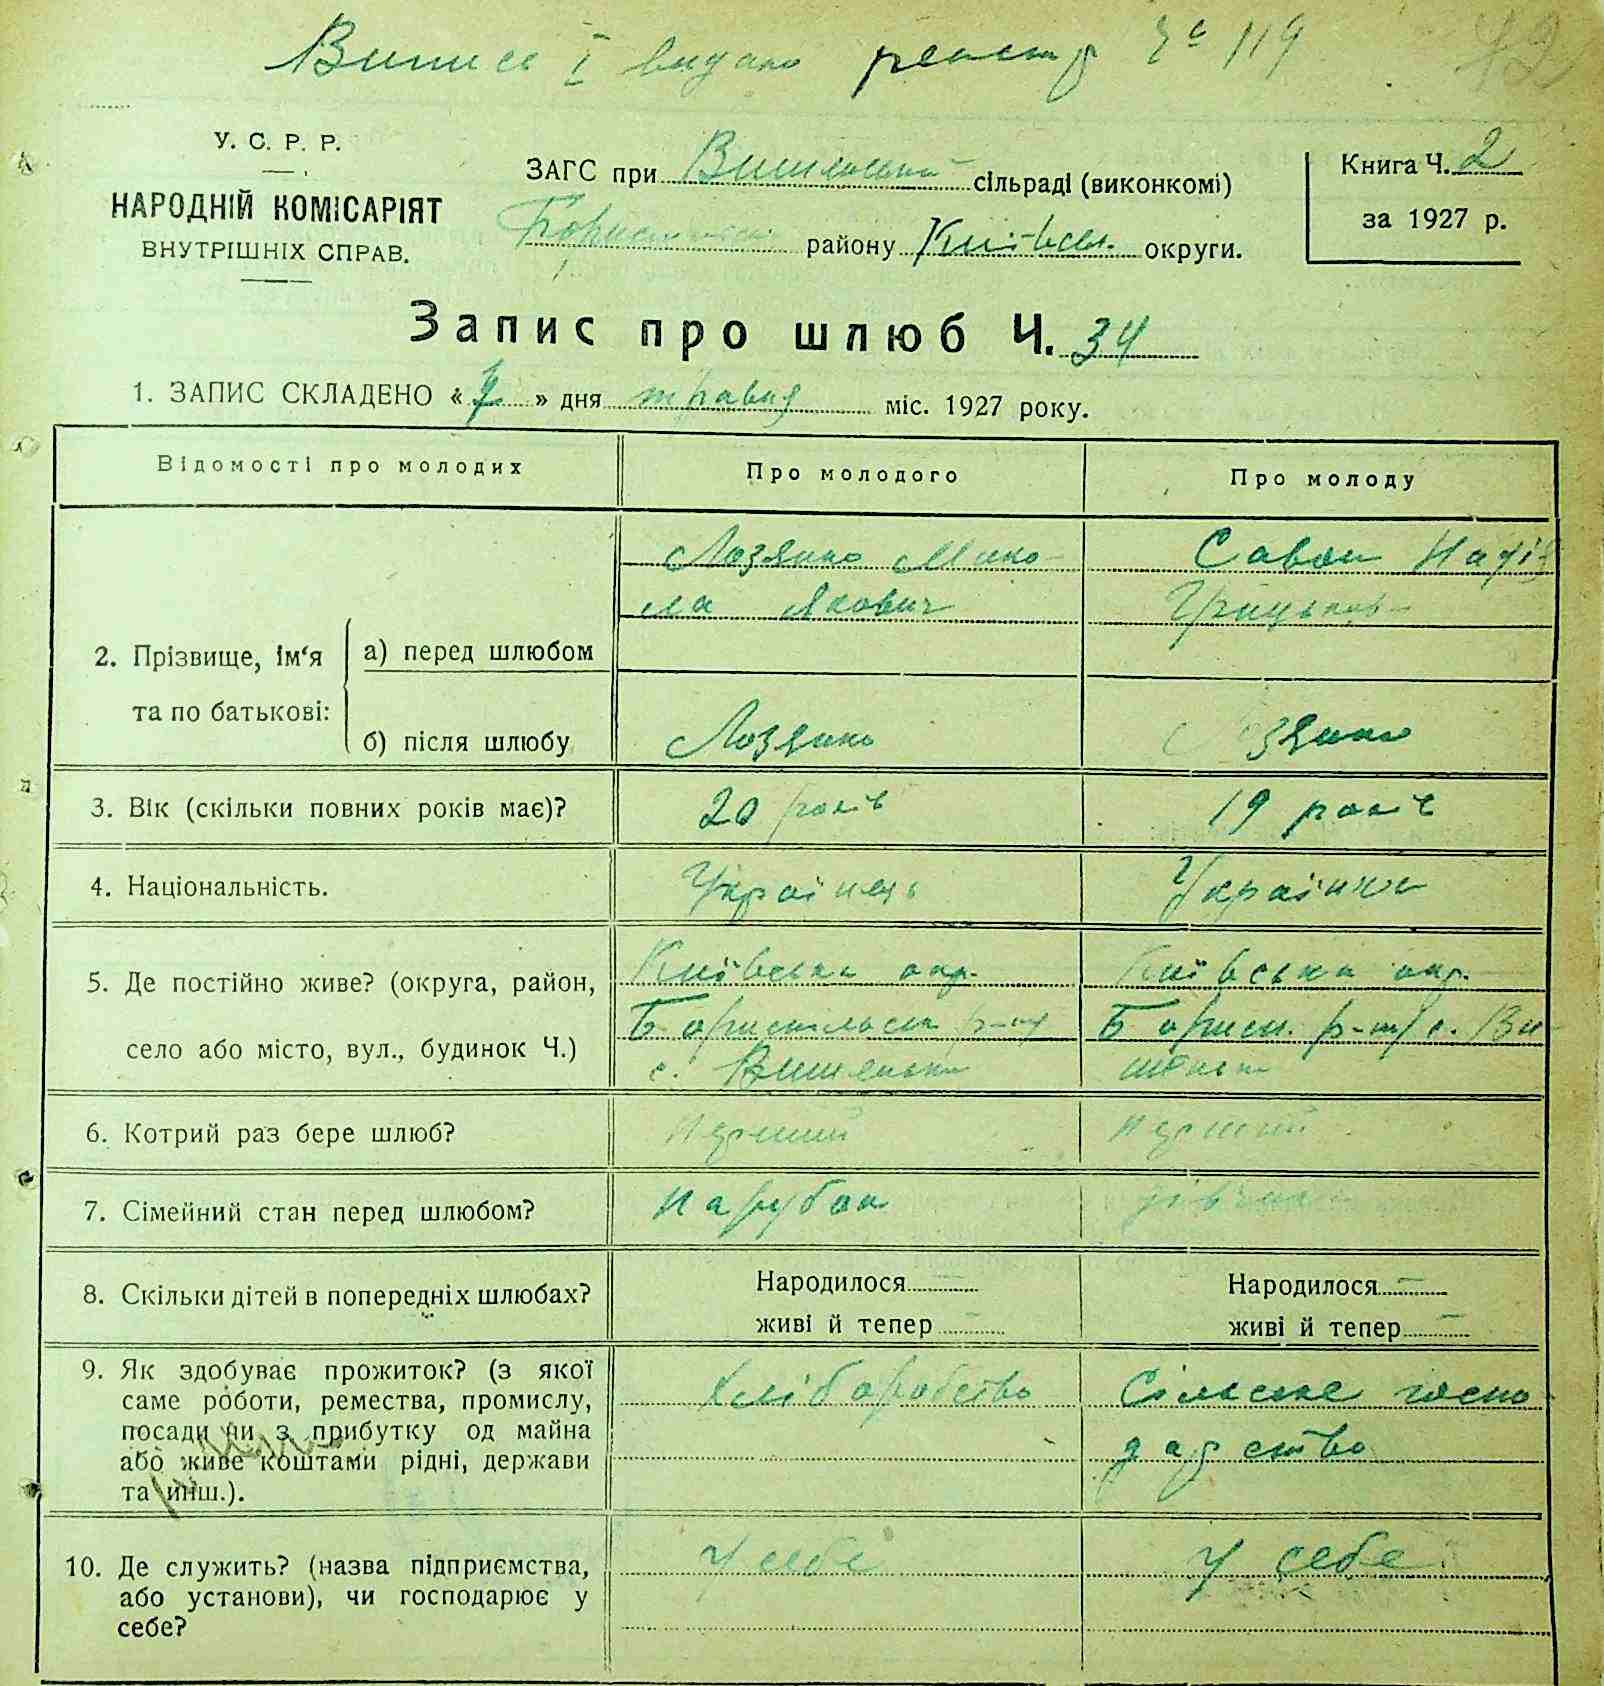 Випис І видано реєстр № 119
42
У. С. Р. Р.
НАРОДНІЙ КОМІСАРІЯТ
ВНУТРІШНІХ СПРАВ.
ЗАГС при Вишеньській сільраді (виконкомі)
району Київськ. округи.
Книга Ч. 2
за 1927 р.
Запис про шлюб Ч. 34
1. ЗАПИС СКЛАДЕНО « 7 » дня травня міс. 1927 року.
Відомості про молодих
Про молодого
Про молоду
2. Прізвище, ім‘я та по батькові:
а) перед шлюбом
Лозянко Мико-
ла Якович
Савон
Грицьків-
б) після шлюбу
Лозянко
зянко
3. Вік (скільки повних років має)?
20 років
19 років
4. Національність.
Українець
Українка
5. Де постійно живе? (округа, район,
село або місто, вул., будинок Ч.)
Київська окр.
Бориспільськ р-ну
с. Вишеньки
Київська окр.
Борисп. р-ну с. Ви-
шеньки
6. Котрий раз бере шлюб?
Перший
Перший
7. Сімейний стан перед шлюбом?
парубок
дівчина
8. Скільки дітей в попередніх шлюбах?
Народилося —
живі й тепер —
Народилося —
живі й тепер —
9. Як здобуває прожиток? (з якої
саме роботи, ремества, промислу,
посади чи з прибутку од майна
або живе коштами рідні, держави
та инш.).
Хліборобство
Сільське госпо-
дарство
10. Де служить? (назва підприємства,
або установи), чи господарює у
себе?
У себе
У себе